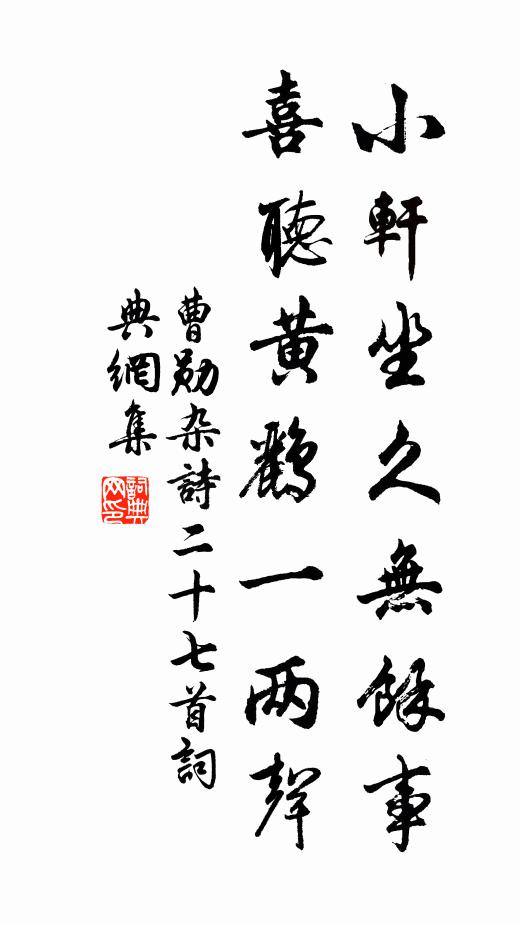 小軒坐久無餘事
喜聽黃鸝一两聲
曹勋杂詩二十七首詞
典網集
詞典网印